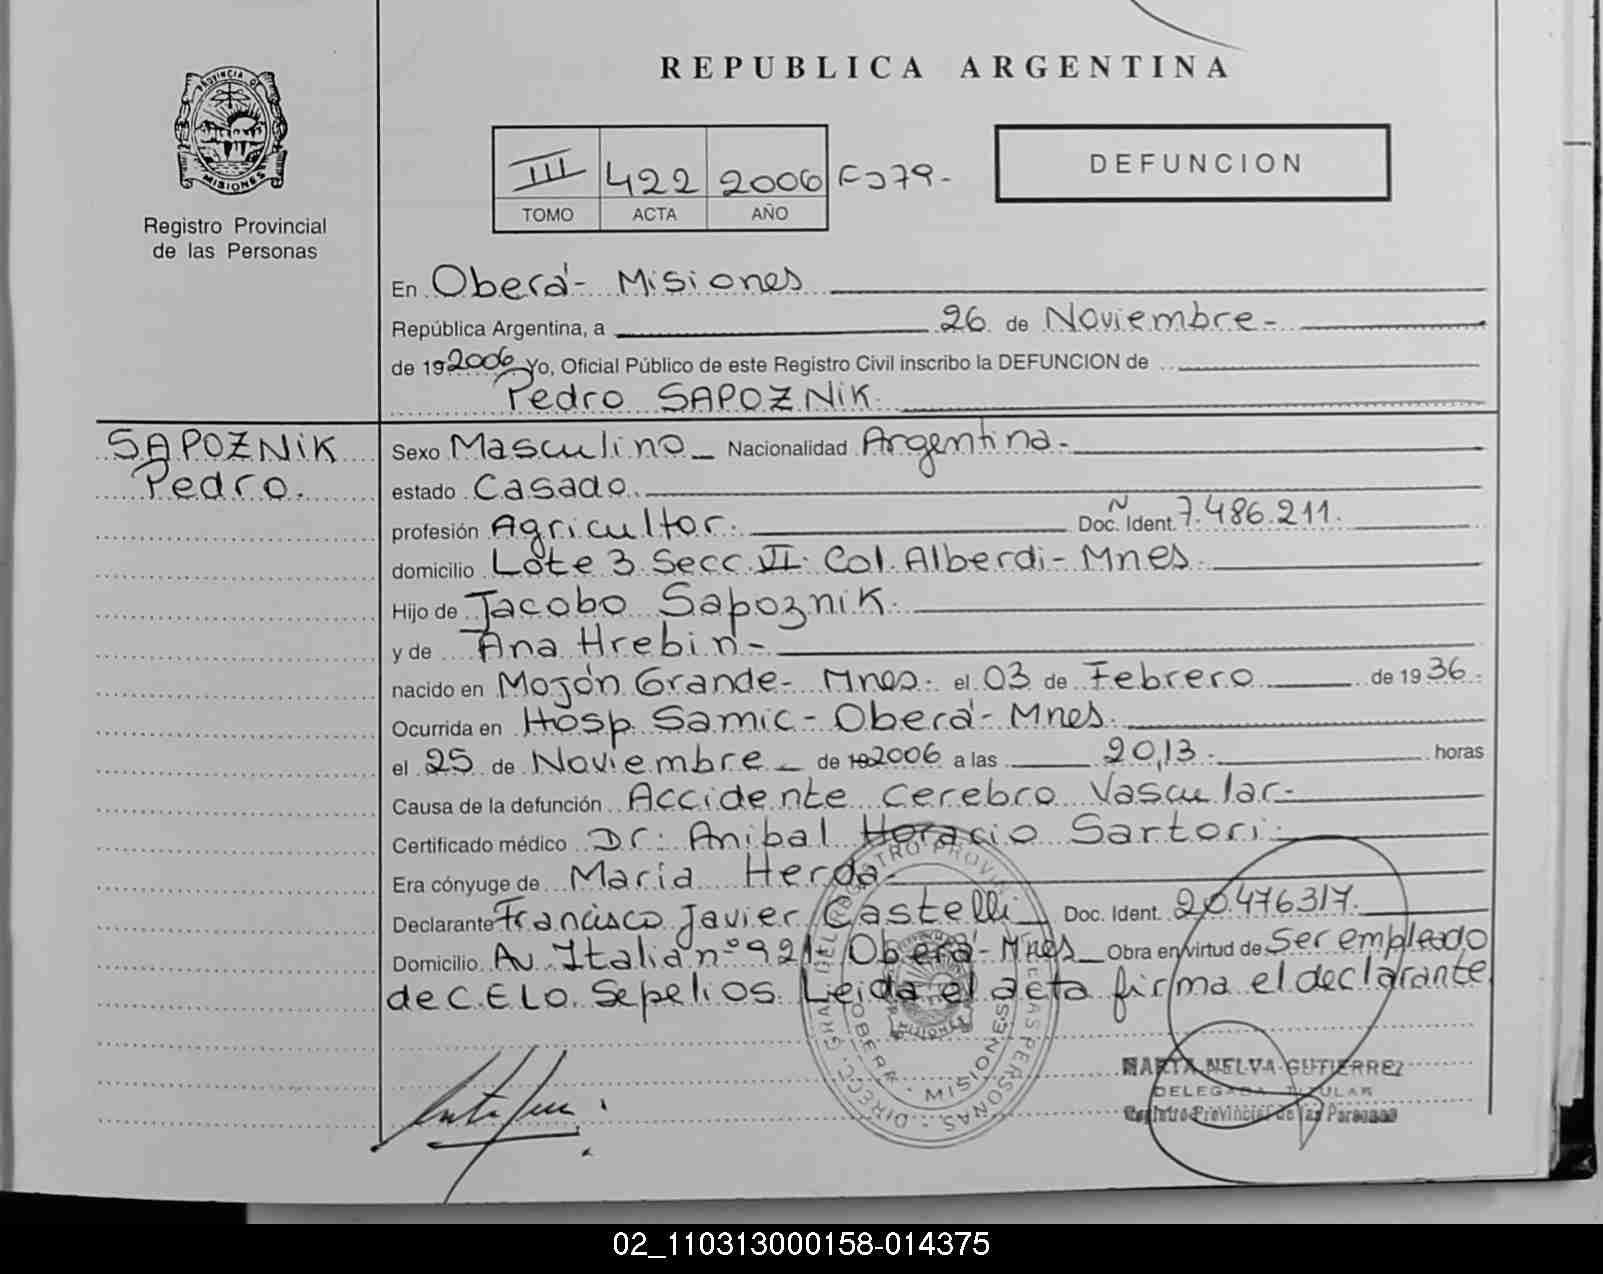 REPUBLICA ARGENTINA
PROVINCIA DE
MISIONES
Registro Provincial
de las Personas
III 422 2006 Fº 79.-
TOMO ACTA AÑO
DEFUNCION
En Oberá- Misiones
República Argentina, a 26 de Noviembre-
de 19 2006 Yo, Oficial Público de este Registro Civil inscribo la DEFUNCION de
Pedro SAPOZNIK.
SAPOZNIK
Pedro.
Sexo Masculino Nacionalidad Argentina.-
estado Casado.
profesión Agricultor. Doc. Ident. N 7.486.211.
domicilio Lote 3 Secc. VI. Col. Alberdi- Mnes.
Hijo de Jacobo Sapoznik.
y de Ana Hrebin-
nacido en Mojón Grande- Mnes. el 03 de Febrero de 19 36.
Ocurrida en Hosp. Samic- Oberá- Mnes.
el 25 de Noviembre de 19 2006 a las 20,13.- horas
Causa de la defunción Accidente cerebro Vascular-
Certificado médico Dr: Anibal Horacio Sartori.
Era cónyuge de Maria Herda-
Declarante Francisco Javier Castelli Doc. Ident. 20.476317.
Domicilio Av. Italia nº 921- Oberá- Mnes Obra en virtud de Ser empleado
de C.E.L.O. Sepelios. Leida el acta firma el declarante
DIRECC. GRAL DEL REGISTRO PROVINCIAL DE LAS PERSONAS
OBERA - MISIONES
MISIONES
MARTA NELVA GUTIERREZ
DELEGADA TITULAR
Registro Provincial de las Personas
02_110313000158-014375